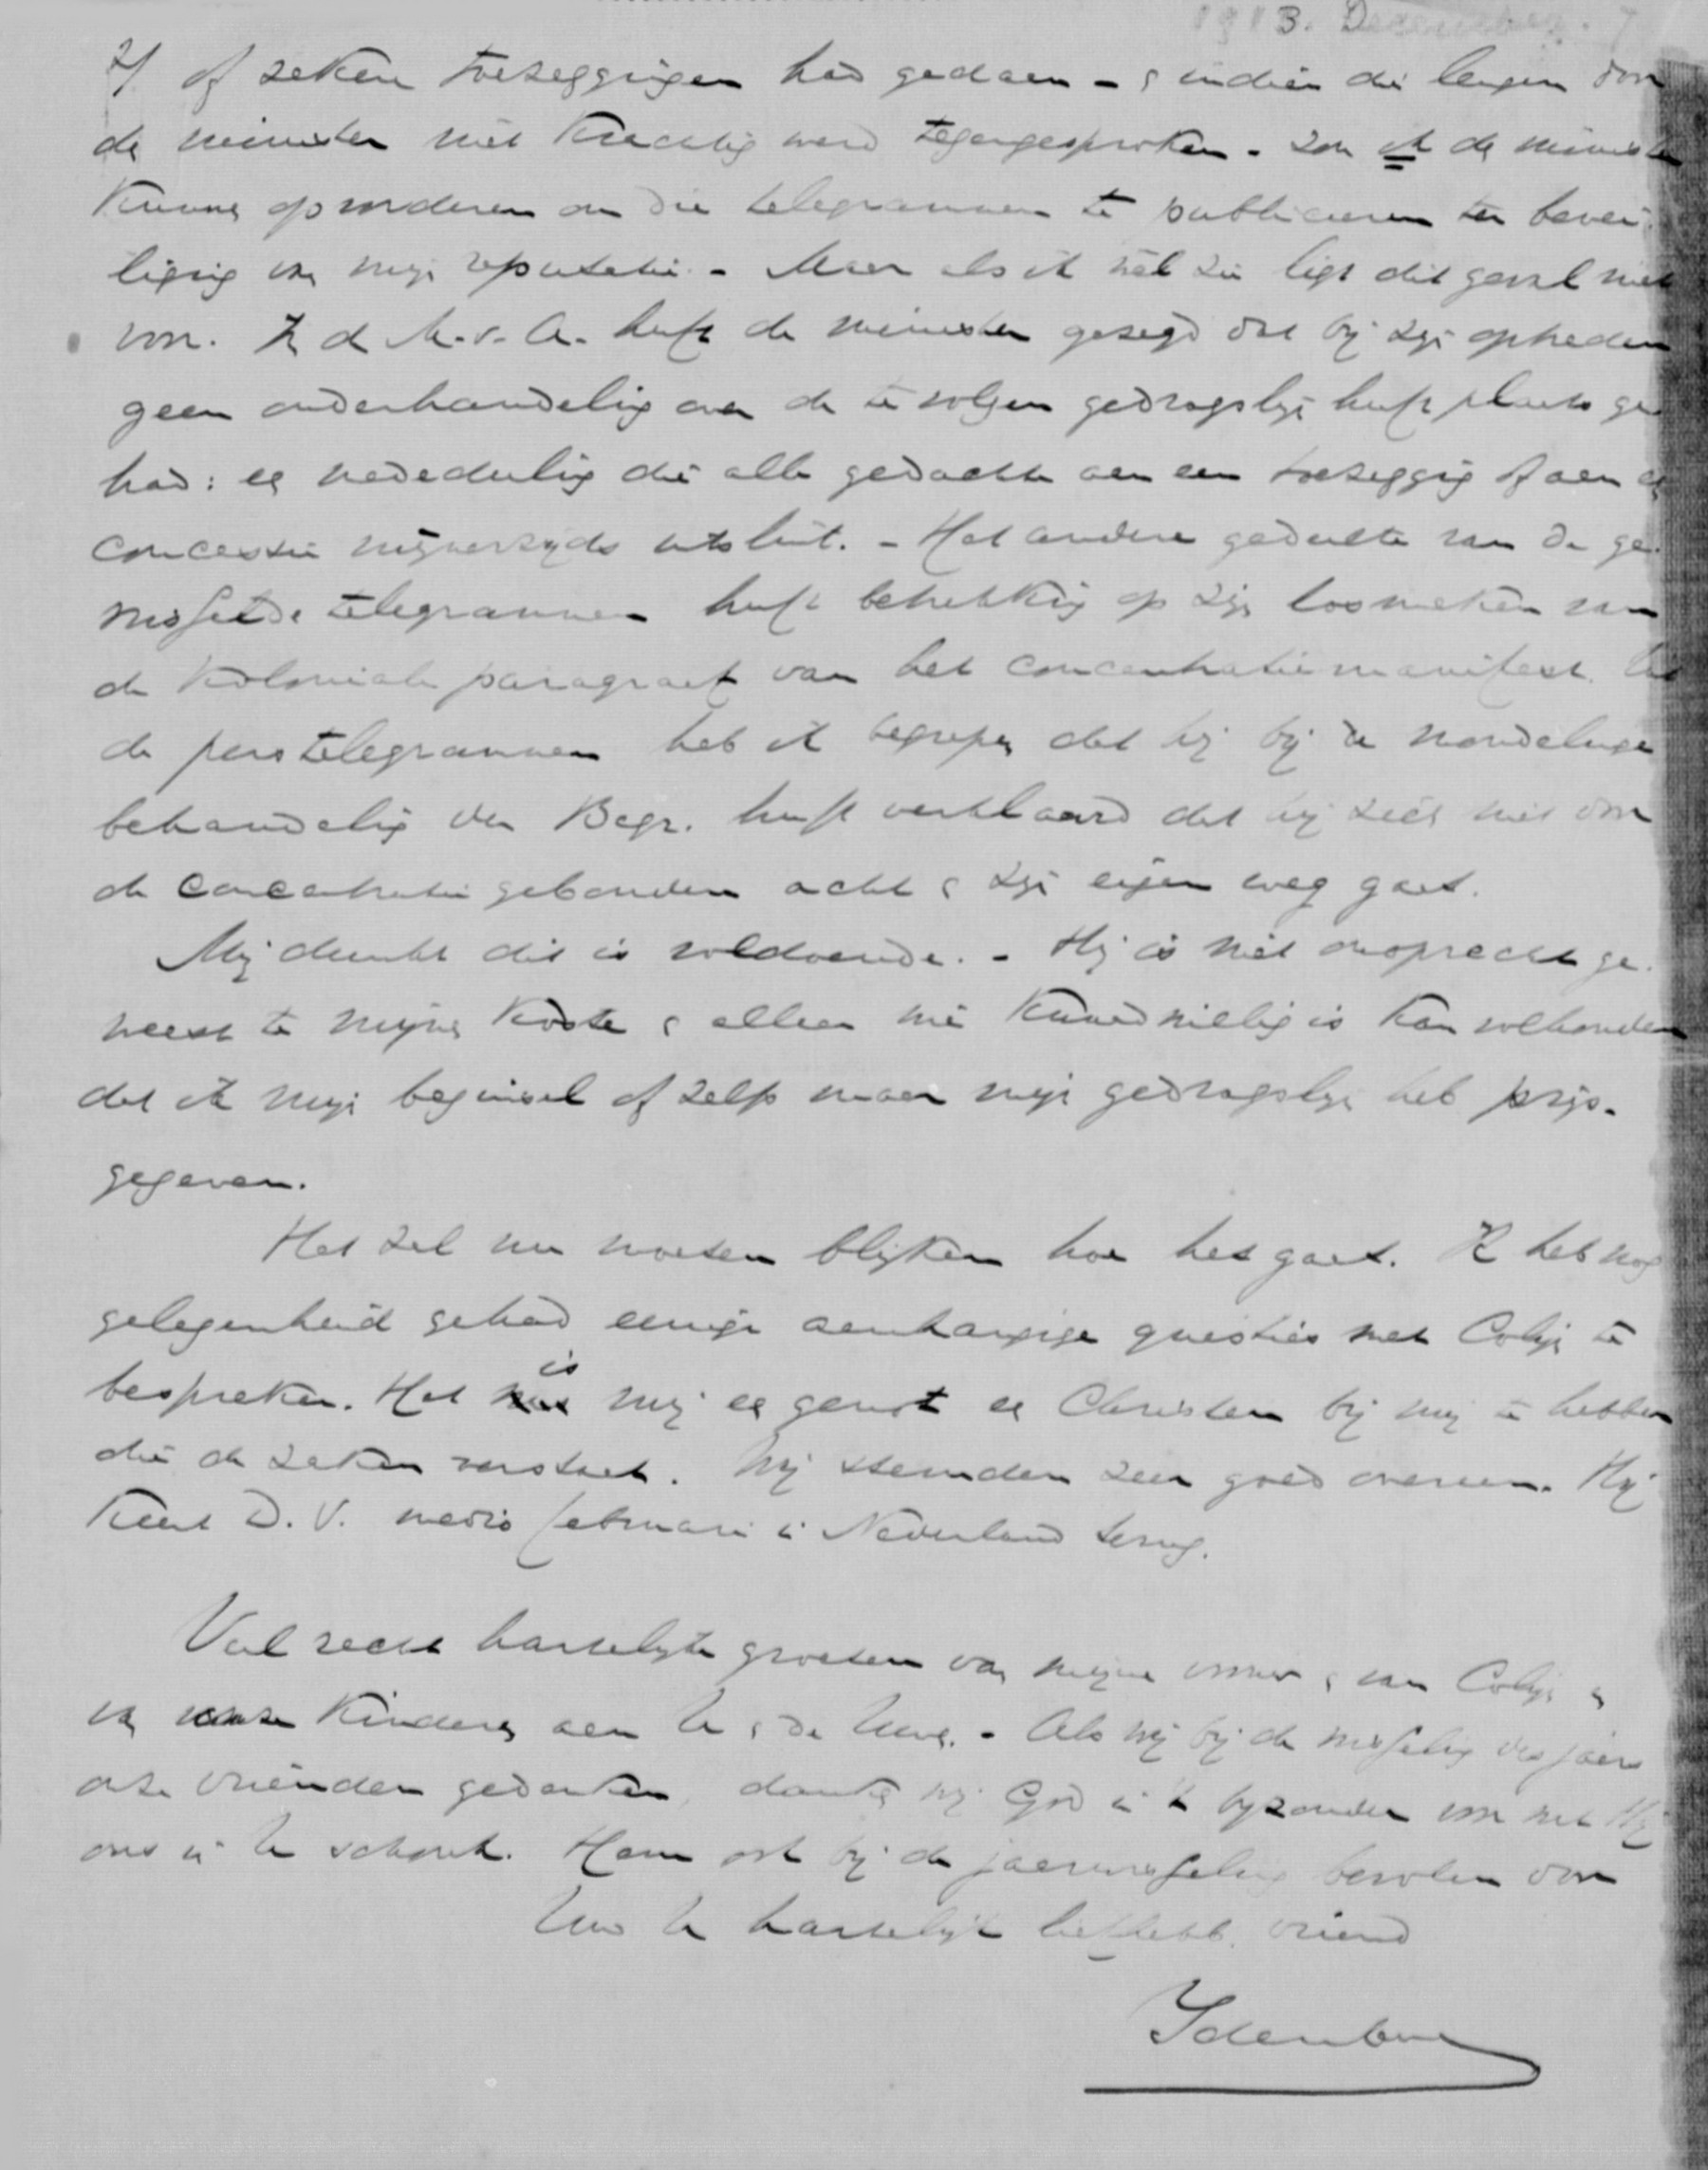 1913. December.
2/ of zekere toezeggingen had gedaan - & indien die leugen door
de minister niet krachtig werd tegengesproken - zou ik de minister
kunnen opvorderen om die telegrammen te publiceeren ter bevei-
liging van mijn reputatie. - Maar als ik wèl zie ligt dit geval niet
voor. In de M.v.A. heeft de minister gezegd dat bij zijn optreden
geen onderhandeling over de te volgen gedragslijn heeft plaats ge-
had: en mededeeling die alle gedachte aan een toezegging of aan een
concessie mijnerzijds uitsluit. - Het andere gedeelte van de ge-
wisselde telegrammen heeft betrekking op zijn losmaken van
de koloniale paragraaf van het concentratiemanifest. Uit
de perstelegrammen heb ik begrepen dat hij bij de mondelinge
behandeling der Begr. heeft verklaard dat hij zich niet door
de concentratie gebonden acht & zijn eigen weg gaat.
Mij dunkt dit is voldoende. - Hij is niet onoprecht ge-
weest te mijnen koste & alleen wie kwaadwillig is kan volhouden
dat ik mijn beginsel of zelfs maar mijn gedragslijn heb prijs-
gegeven.
Het zal nu moeten blijken hoe het gaat. Ik heb nog
gelegenheid gehad eenige aanhangige questies met Colijn te
bespreken. Het is mij een genot een Christen bij mij te hebben
die de zaken verstaat. Wij stemden zeer goed overeen. Hij
keert D.V. medio februari in Nederland terug.
Veel recht hartelijke groeten van mijne vrouw & van Colijn &
van onze kinderen aan U & de Uwen. - Als wij bij de wisseling des jaars
onze vrienden gedenken, danken wij God in 't bijzonder voor wat Hij
ons in U schonk. Hem ook bij de jaarwisseling bevolen door
Uw U hartelijk liefhebb. vriend
Idenburg